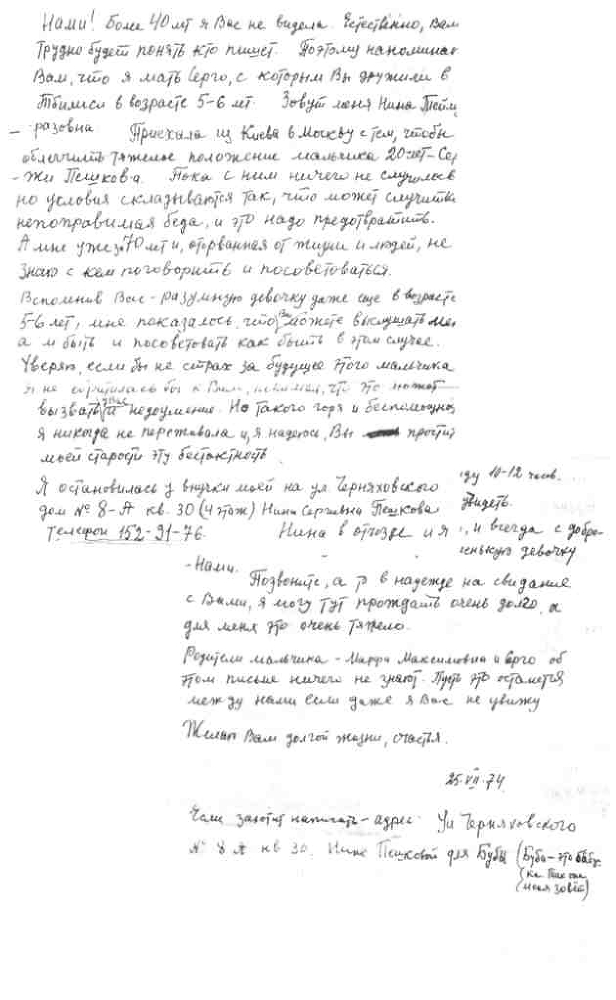 Нами! Более 40 лет я Вас не видела. Естественно, Вам
трудно будет понять кто пишет. Поэтому напоминаю
Вам, что я мать Серго, с которым Вы дружили в
Тбилиси в возрасте 5-6 лет. Зовут меня Нина Тейм
- разовна Приехала из Киева в Москву с тем, чтобы
облегчить тяжелое положение мальчика 20 лет - Сер
- жи Пешкова. Пока с ним ничего не случилось
но условия складываются так, что может случиться
непоправимая беда, и это надо предотвратить.
А мне уже за 70 лет и, оторванная от жизни и людей, не
знаю с кем поговорить и посоветоваться.
Вспомнив Вас - разумную девочку даже еще в возрасте
5-6 лет, мне показалось, что Вы можете выслушать мен
а м быть и посоветовать как быть в этом случае.
Уверяю, если бы не страх за будущее этого мальчика
я не обратилась бы к Вам, понимая, что это может
вызвать у Вас недоумение. Но такого горя и беспомощнос
я никогда не переживала и, я надеюсь, Вы простит
моей старости эту бестактность.
Я остановилась у внучки моей на ул. Черняховского
дом № 8-А кв. 30 (4 этаж) Нина Сергеевна Пешкова
Телефон 152-91-76. Нина в отъезде и я
ду 10-12 часов.
увидеть.
, и всегда с добро-
сенькую девочку
- Нами.
Позвоните, а то в надежде на свидание
с Вами, я могу тут прождать очень долго, а
для меня это очень тяжело.
Родители мальчика - Марфа Максимовна и Серго об
этом письме ничего не знают. Пусть это останется
между нами если даже я Вас не увижу
Желаю Вам долгой жизни, счастья.
25.VII.74
Если захотите написать - адрес. Ул Черняховского
№ 8 А кв 30. Нине Пешковой для Бубы (Буба - это бабу
ка Так она
меня зовет)